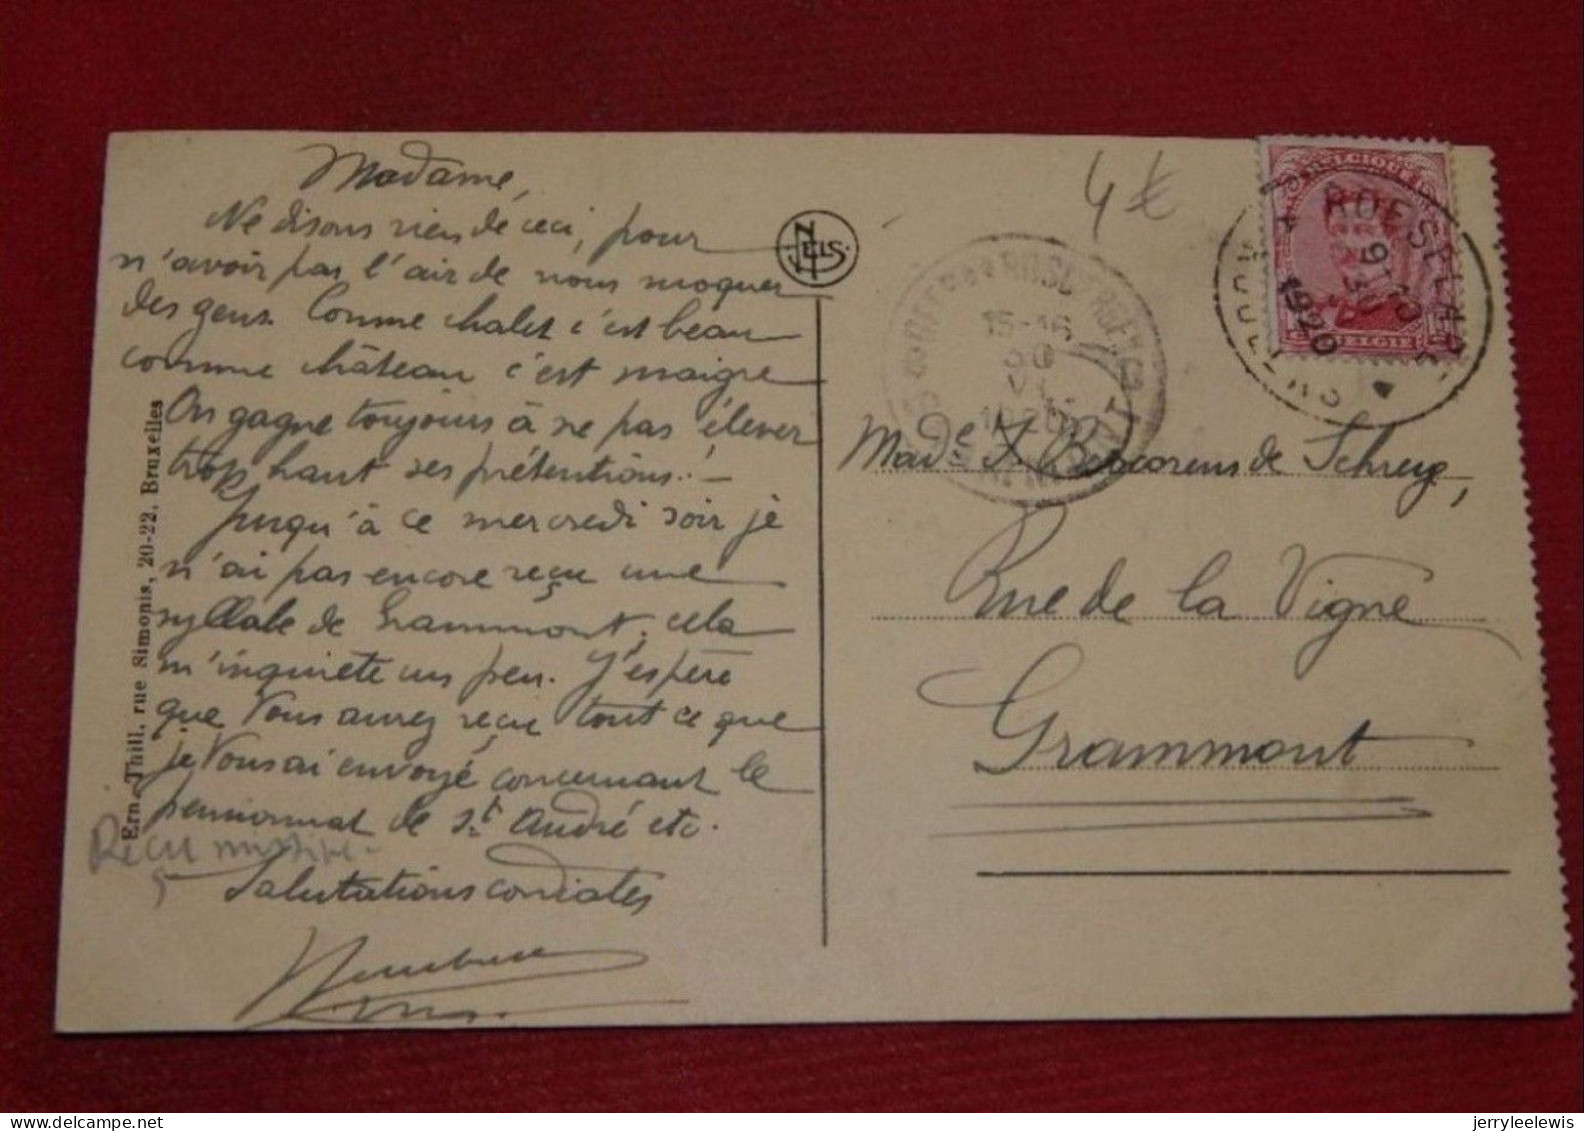 Madame,
Ne disons rien de ceci, pour
n'avoir pas l'air de nous moquer
des gens. Comme chalet c'est beau
comme château c'est maigre
On gagne toujours à ne pas élever
trop haut ses prétentions! —
Jusqu'à ce mercredi soir je
n'ai pas encore reçu une
syllabe de Grammont, cela
m'inquiète un peu. J'espère
que Vous aurez reçu tout ce que
je Vous ai envoyé concernant le
pensionnat de St André etc.
Salutations cordiales
Reçu
Ern. Thill, rue Simonis, 20-22, Bruxelles
NELS
4€
15-16
30
VI
1920
BELGIQUE
BELGIE
ROESELARE
ROULERS
9-10
30
1920
Made
de Schreye,
Rue de la Vigne
Grammont
jerryleelewis